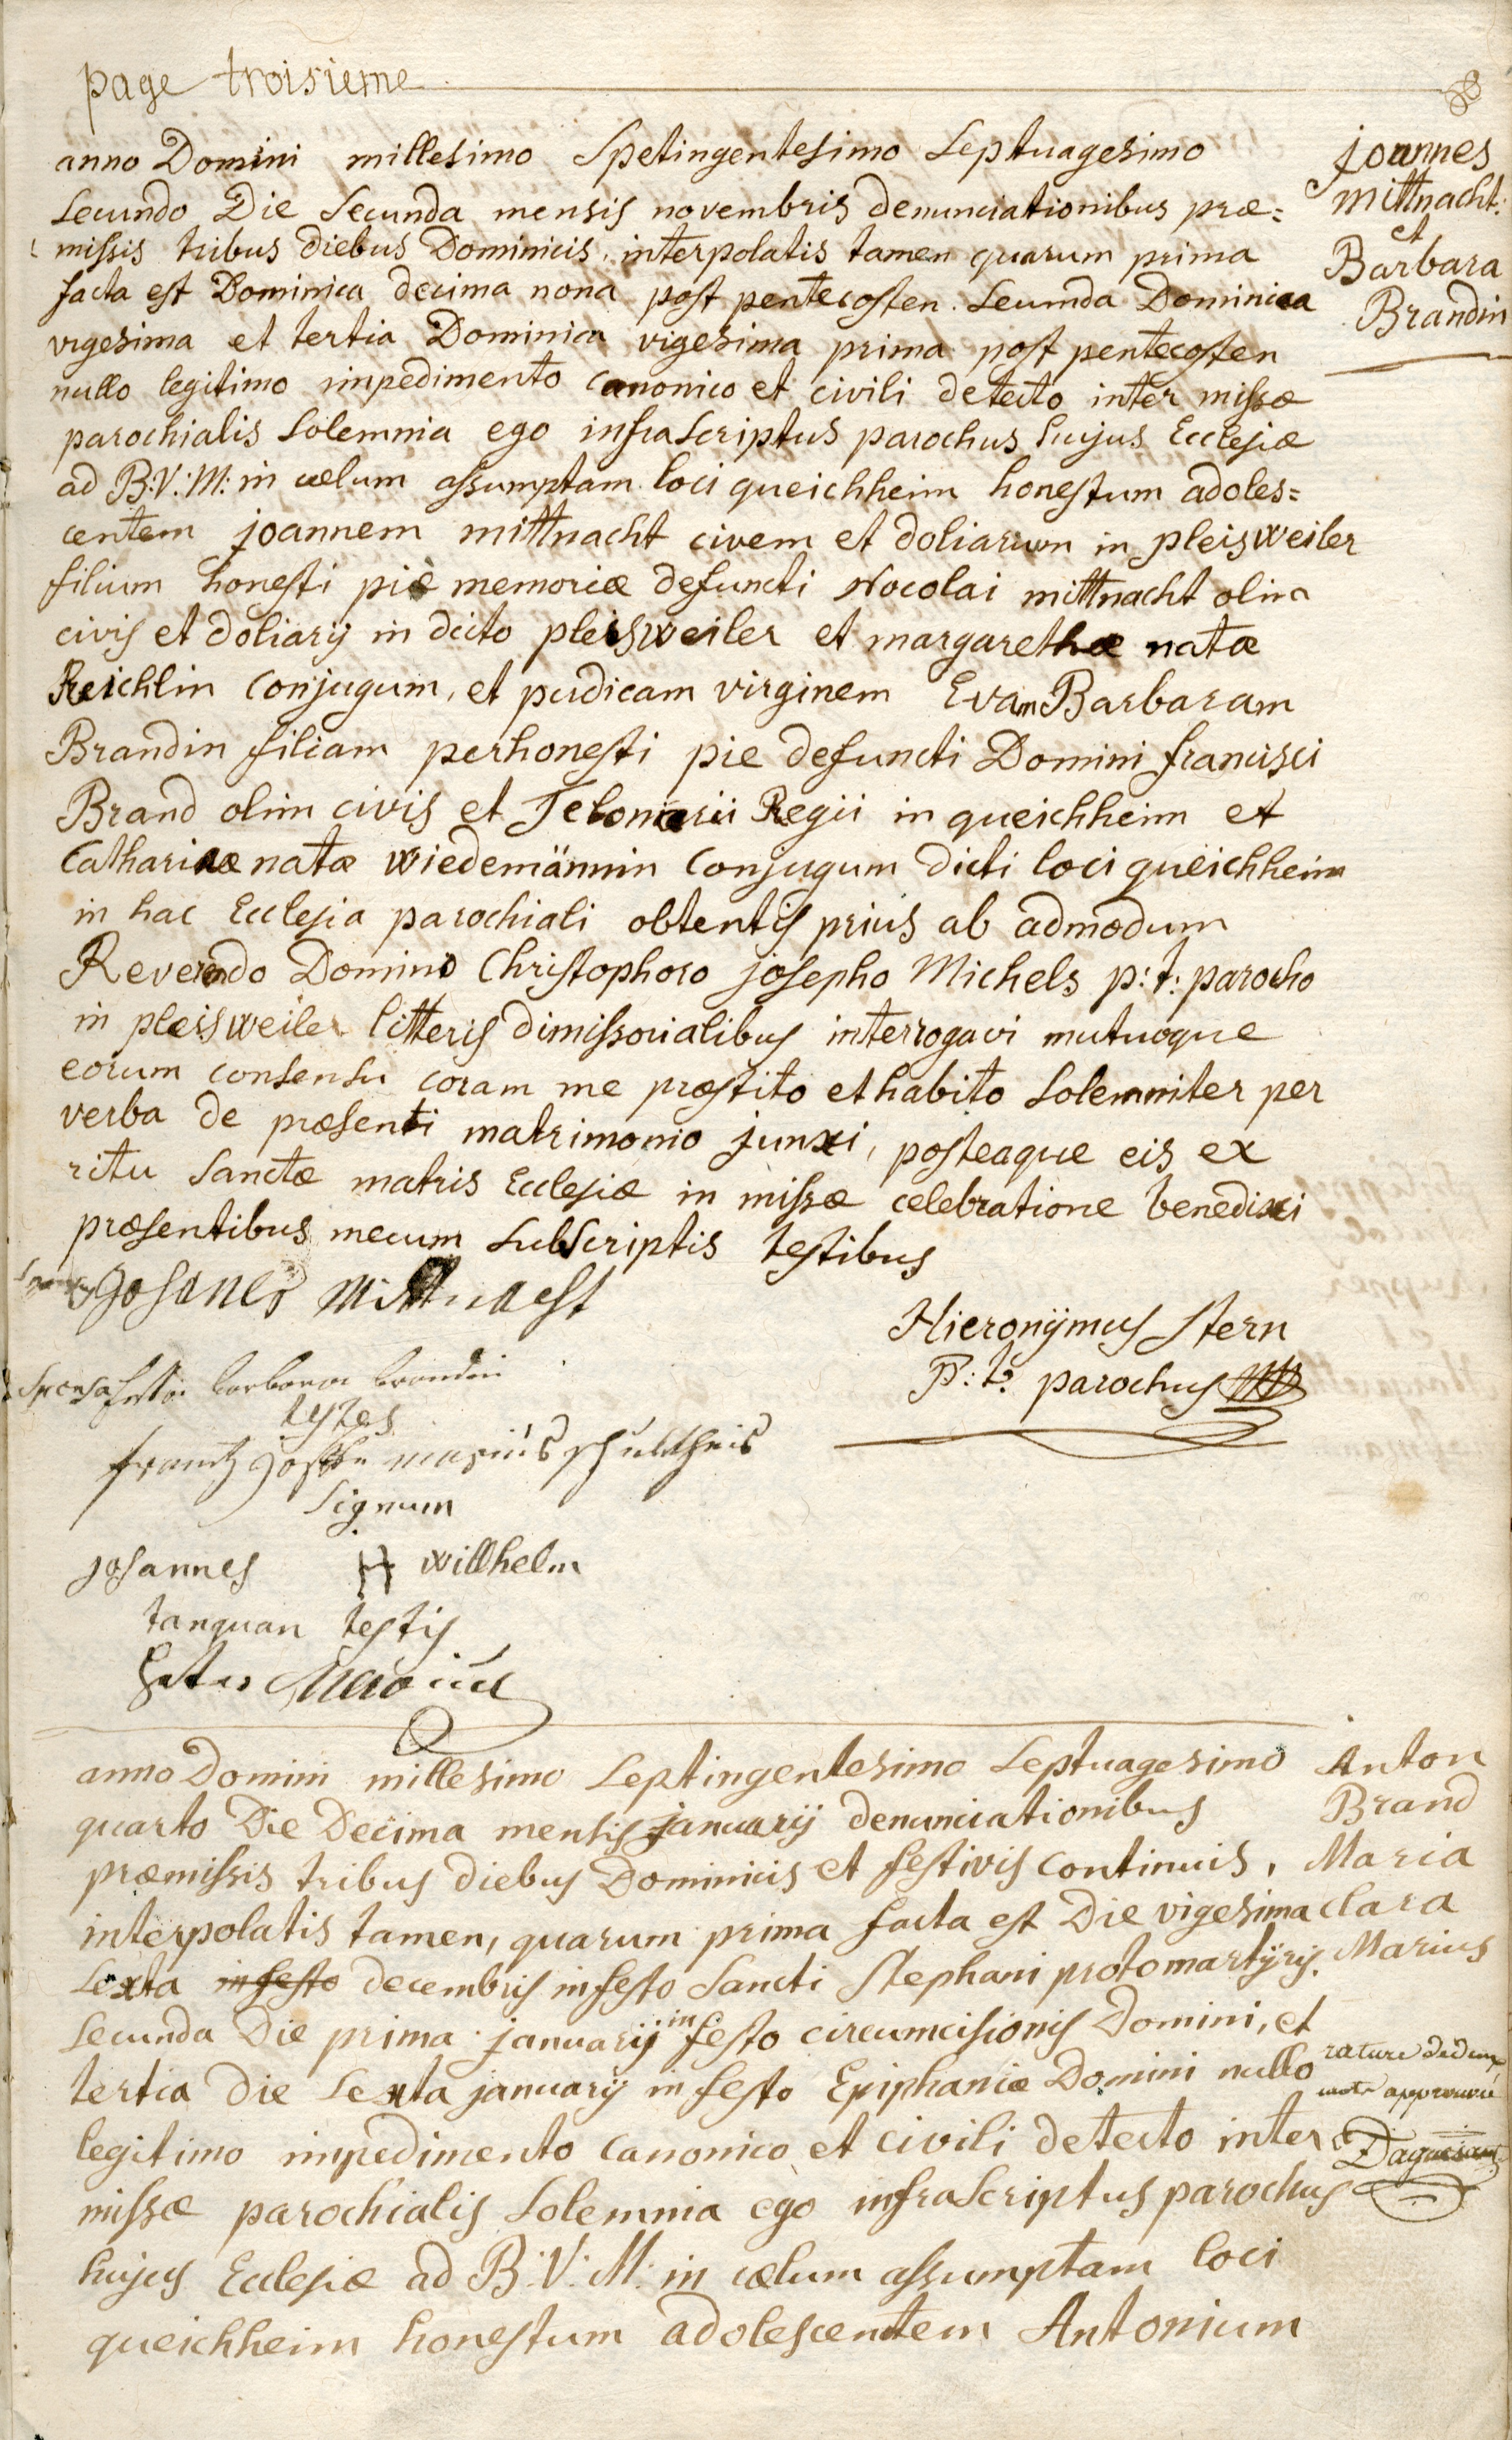 page troisieme
anno Domini millesimo Spetingentesimo Septuagesimo
secundo Die secunda mensis novembris denunciationibus præ=
missis tribus diebus Dominicis, interpolatis tamen quarum prima
facta est Dominica decima nona post pentecosten. secunda Dominica
vigesima et tertia Dominica vigesima prima post pentecosten
nullo legitimo impedimento canonico et civili detecto inter missæ
parochialis solemnia ego infrascriptus parochus hujus Ecclesiæ
ad B: V: M: in cælum assumptam loci queichheim honestum adoles=
centem joannem mittnacht civem et doliarium in pleisweiler
filium honesti piè memoriæ defuncti Nocolai mittnacht olim
civis et doliarij in dcito pleisweiler et margarethæ natæ
Reichlin conjugum, et pudicam virginem Evam Barbaram
Brandin filiam perhonesti pie defuncti Domini francisci
Brand olim civis et Telonarii Regii in queichheim et
Catharinæ natæ wiedemännin conjugum dicti loci queichheim
in hac Ecclesia parochiali obtentis prius ab admodum
Reverendo Domino Christophoro josepho Michels p: t: parocho
in pleisweiler litteris dimissorialibus interrogavi mutuoque
eorum consensu coram me præstito et habito solemniter per
verba de præsenti matrimonio junxi, posteaque eis ex
ritu sanctæ matris Ecclesiæ in missæ celebratione benedixi
præsentibus mecum subscriptis testibus
johanes Mittnacht
Hieronÿmus Stern
P: t: parochus
sponsa barbara brandin
testes
frantz marius schultheis
signum
johannes H willhelm
tanquan testis
Peter Marius
joannes
mittnacht.
et
Barbara
Brandin
anno Domini millesimo septingentesimo septuagesimo
quarto Die Decima mensis januarij denunciationibus
præmissis tribus diebus Dominicis et festivis continuis,
interpolatis tamen, quarum prima facta est Die vigesima
sexta in festo decembris in festo sancti Stephani protomartÿris.
secunda Die prima januarij in festo circumcisionis Domini, et
tertia die sexta januarij in festo Epiphaniæ Domini nullo
legitimo impedimento canonico et civili detecto inter
missæ parochialis solemnia ego infrascriptus parochus
hujus Ecclesiæ ad B: V: M: in cælum assumptam loci
queichheim honestum adolescentem Antonium
Anton
Brand
Maria
clara
Marius
rature de deux
mots approuvée